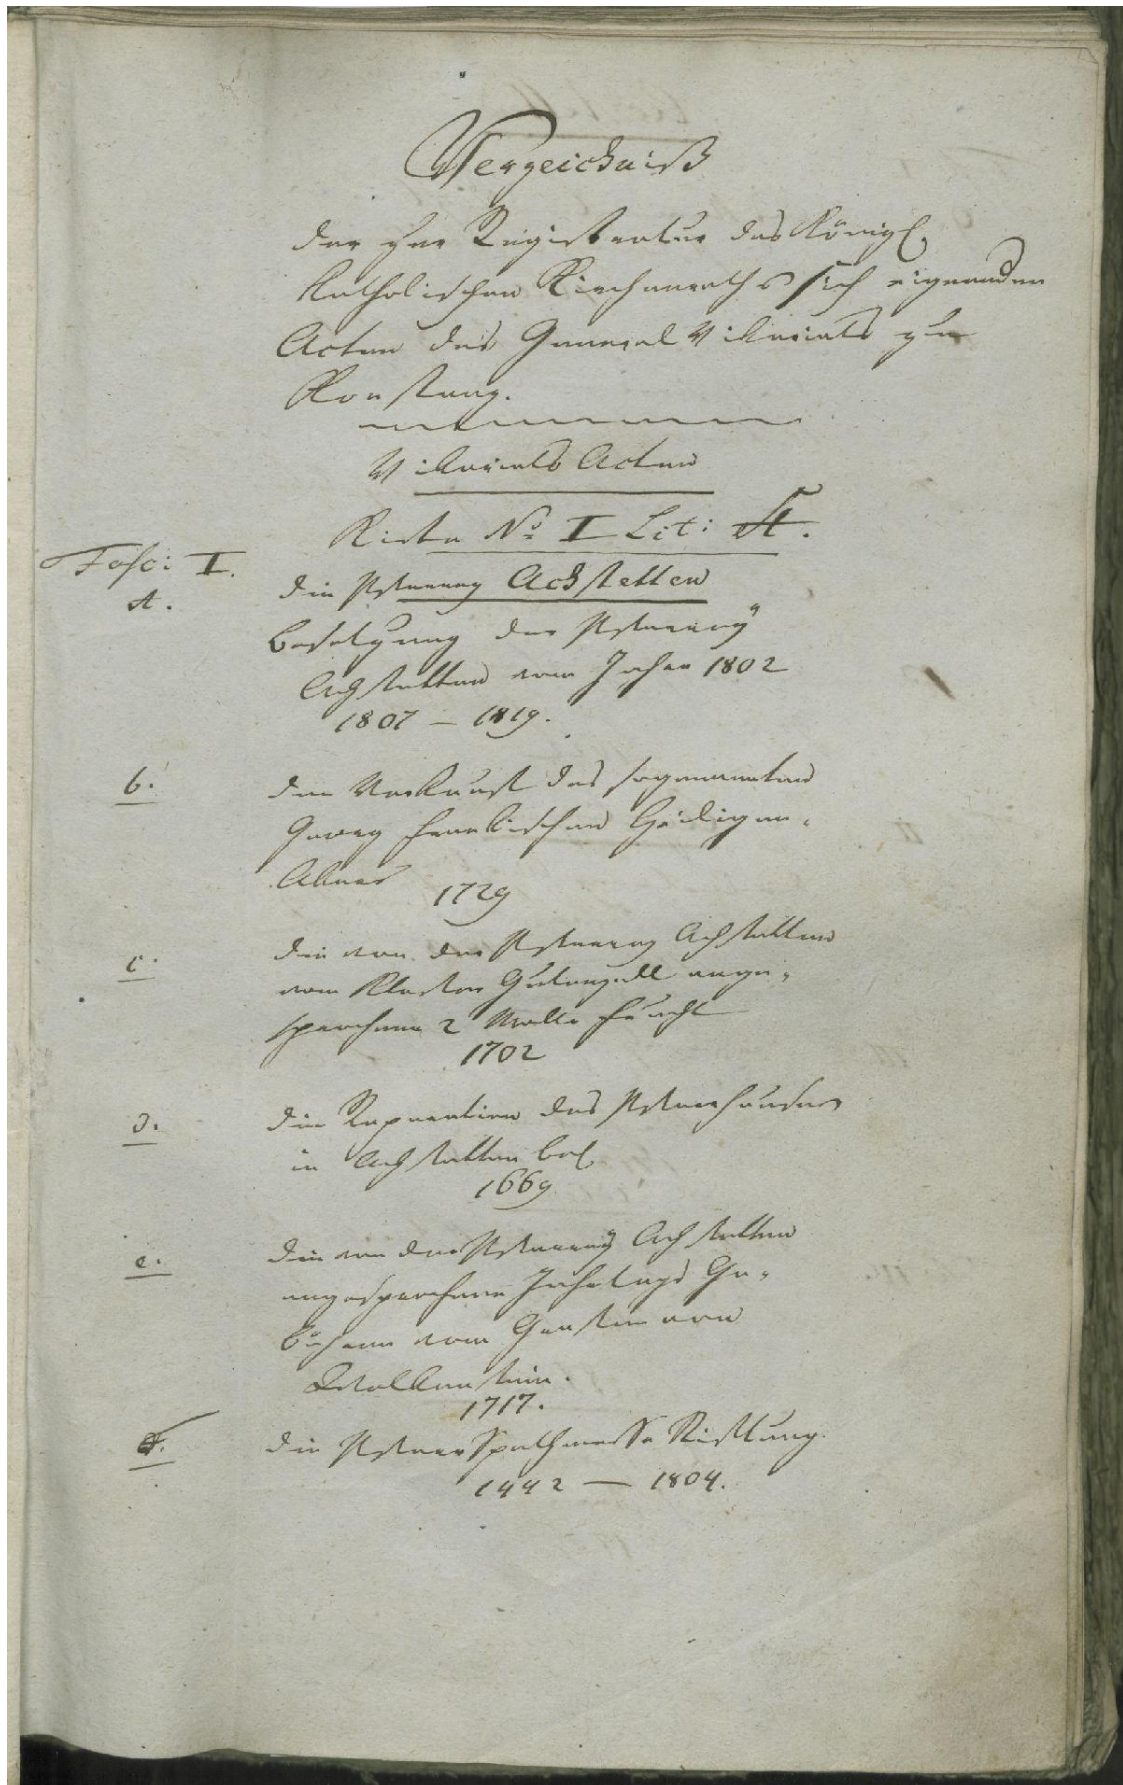 Verzeichniß
der zur Registratur des Königl.
Katholischen Kirchenraths sich eignenden
Acten des General Vikariats zu
Konstanz.
Vikariats Acten
Kiste No I Lit: A.
Fasc: I.
die Pfarrey Achstetten
A.
Besetzung der Pfarrey
Achstetten vom Jahre 1802
1807 – 1819.
b.
den Verkauf des sogenannten
Georg Heiligen-
1729
c.
die von der Pfarrey Achstetten
vom Kloster Gutenzell ange-
sprochene 2 Frucht
1702
d.
die Reparation des Pfarrhauses
in Achstetten betr.
1669
e.
die von der Pfarrey Achstetten
angesprochene Jahrtags Ge-
bühren vom
1717.
f.
die Pfarr Spathmesse Stiftung.
1442 – 1804.